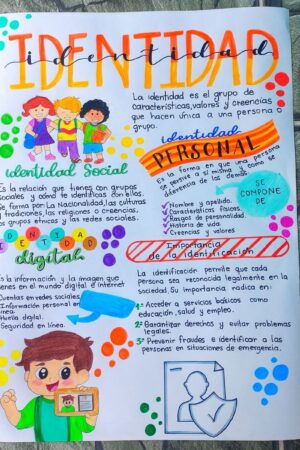 IDENTIDAD
identidad
La identidad es el grupo de
características, valores y creencias
que hacen única a una persona o
grupo.
identidad
PERSONAL
Es la forma en que una persona
se percibe a sí misma y como se
diferencia de los demás.
SE
COMPONE
DE
Nombre y apellido.
Características físicas.
Rasgos de personalidad
Historia de vida
Creencias y valores
identidad Social
Es la relación que tienes con grupos
sociales y cómo te identificas con ellos.
Se forma por la Nacionalidad, las culturas
y tradiciones, las religiones o creencias,
los grupos étnicos y las redes sociales.
IDENTIDAD
digital
Es la información y la imagen que
tienes en el mundo digital e internet
Cuentas en redes sociales.
Información personal en
línea.
Huella digital.
Seguridad en línea.
Importancia
de la identificación
La identificación permite que cada
persona sea reconocida legalmente en la
sociedad. Su importancia radica en:
1ª Acceder a servicios básicos como
educación, salud y empleo.
2ª Garantizar derechos y evitar problemas
legales.
3ª Prevenir fraudes e identificar a las
personas en situaciones de emergencia.